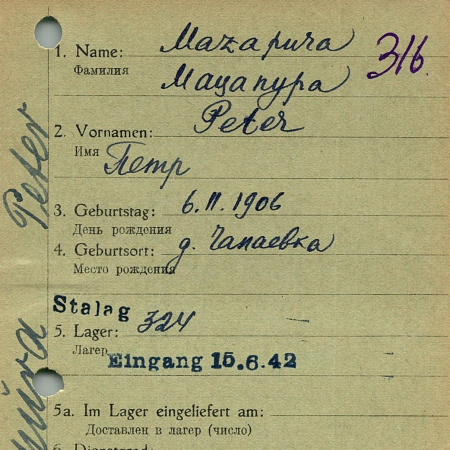 1. Name: Mazapura
Фамилия Мацапура
316.
2. Vornamen: Peter
Имя Петр
3. Geburtstag: 6.II.1906
День рождения
4. Geburtsort: д. Чапаевка
Место рождения
Stalag
5. Lager: 324
Лагер Eingang 15.6.42
5a. Im Lager eingeliefert am:
Доставлен в лагер (число)
6. Dienstgrad:
Peter